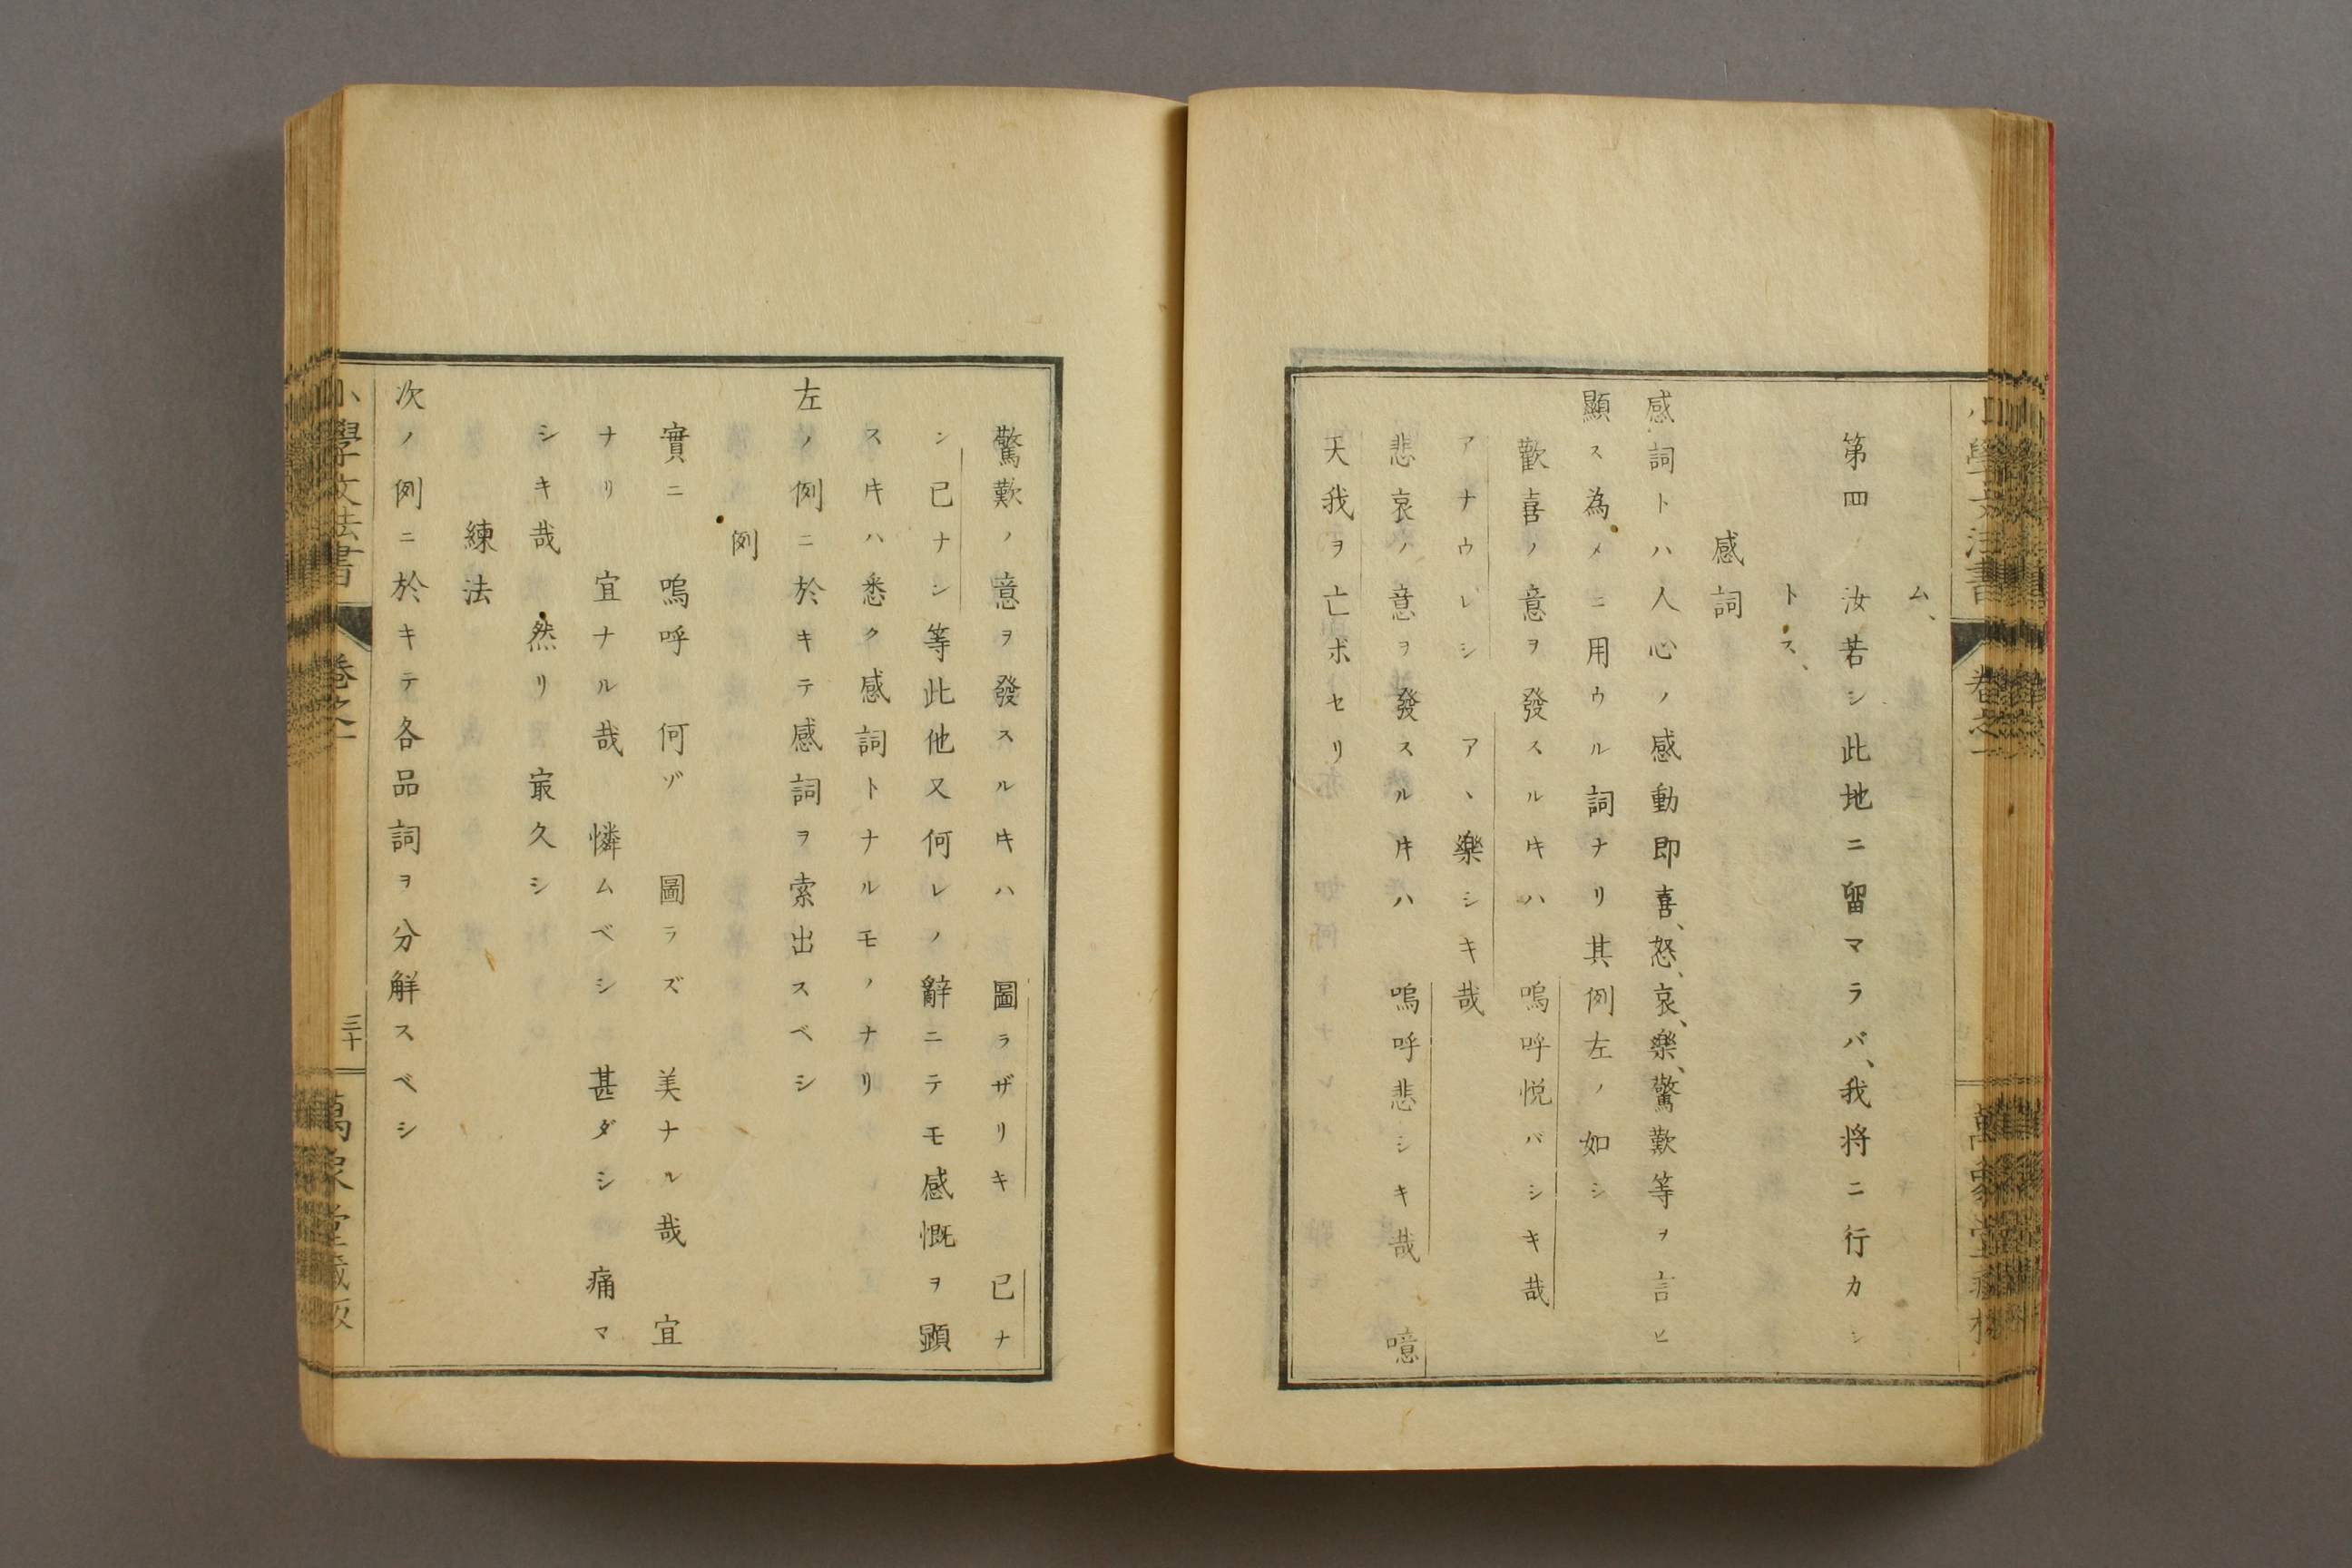 ム、
第四 汝若シ此地ニ留マラバ、我将ニ行カシ
トス、
感詞
感詞トハ人心ノ感動即喜、怒、哀、樂、驚歎等ヲ言ヒ
顯ス為メニ用ウル詞ナリ其例左ノ如シ
歡喜ノ意ヲ發スルキハ 嗚呼悦バシキ哉
アナウレシ アヽ樂シキ哉
悲哀ノ意ヲ發スルキハ 嗚呼悲シキ哉 噫
天我ヲ亡ボセリ
驚歎ノ意ヲ發スルキハ 圖ラザリキ 已ナ
ン已ナシ等此他又何レノ辭ニテモ感慨ヲ顯
スキハ悉ク感詞トナルモノナリ
左ノ例ニ於キテ感詞ヲ索出スベシ
例
實ニ 嗚呼 何ゾ 圖ラズ 美ナル哉 宜
ナリ 宜ナル哉 憐ムベシ 甚ダシ 痛マ
シキ哉 然リ 㝡久シ
練法
次ノ例ニ於キテ各品詞ヲ分解スベシ
小學文法書 卷之一 三十 萬象堂藏版